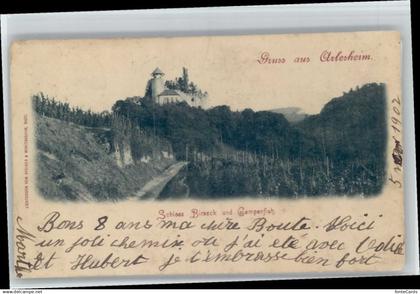 Gruss aus Arlesheim.
Schloss Birseck und Gempenfluh
5 1902
Bons 8 ans ma chère Boute. Voici
un joli chemin, où j'ai été avec
et Hubert, je t'embrasse bien fort